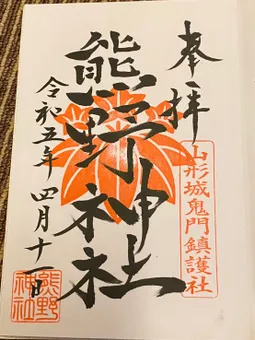 奉拝
山形城鬼門鎮護社
熊野神社
令和五年四月十一日
熊野
神社